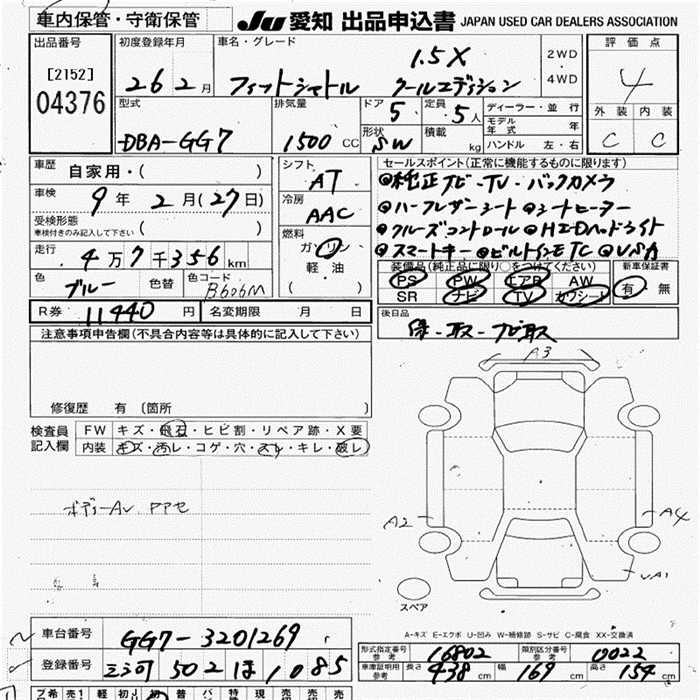 車内保管・守衛保管
JU 愛知 出品申込書 JAPAN USED CAR DEALERS ASSOCIATION
出品番号
[2152]
04376
初度登録年月
26 2月
車名・グレード
1.5X
フィットシャトル クールエディション
2WD
4WD
評価点
4
外装 内装
C C
型式
DBA-GG7
排気量
1500 CC
ドア
5
定員
5人
形状
SW
積載
kg
ディーラー・並行
モデル年式 年
ハンドル 左・右
車歴
自家用・( )
車検
9年 2月(27日)
受検形態
車検付きのみ記入して下さい ( )
走行
4万7千356km
色
ブルー 色替
色コード
B606M
シフト
AT
冷房
AAC
燃料
ガソリン
軽油
( )
セールスポイント(正常に機能するものに限ります)
◎純正ナビ・TV・バックカメラ
◎ハーフレザーシート ◎シートヒーター
◎クルーズコントロール ◎HIDヘッドライト
◎スマートキー ◎ビルトインETC ◎VSA
装備品(純正品に限り○をつけてください)
PS PW エアB AW
SR ナビ TV カワシート
新車保証書
有 無
R券 11440円
名変期限 月 日
後日品
保・取・ナビ取
注意事項申告欄(不具合内容等は具体的に記入して下さい)
修復歴 有 〔箇所 〕
検査員記入欄
FW キズ・飛石・ヒビ割・リペア跡・X要
内装 キズ・汚レ・コゲ・穴・スレ・キレ・破レ
A3
A2
A4
スペア
A-キズ E-エクボ U-凹み W-補修跡 S-サビ C-腐食 XX-交換済
車台番号 GG7-3201269
登録番号 三河 502 ほ 1085
形式指定番号 参考 16802
類別区分番号 参考 0022
車庫証明用 参考 長さ 438cm 幅 169cm 高さ 154cm